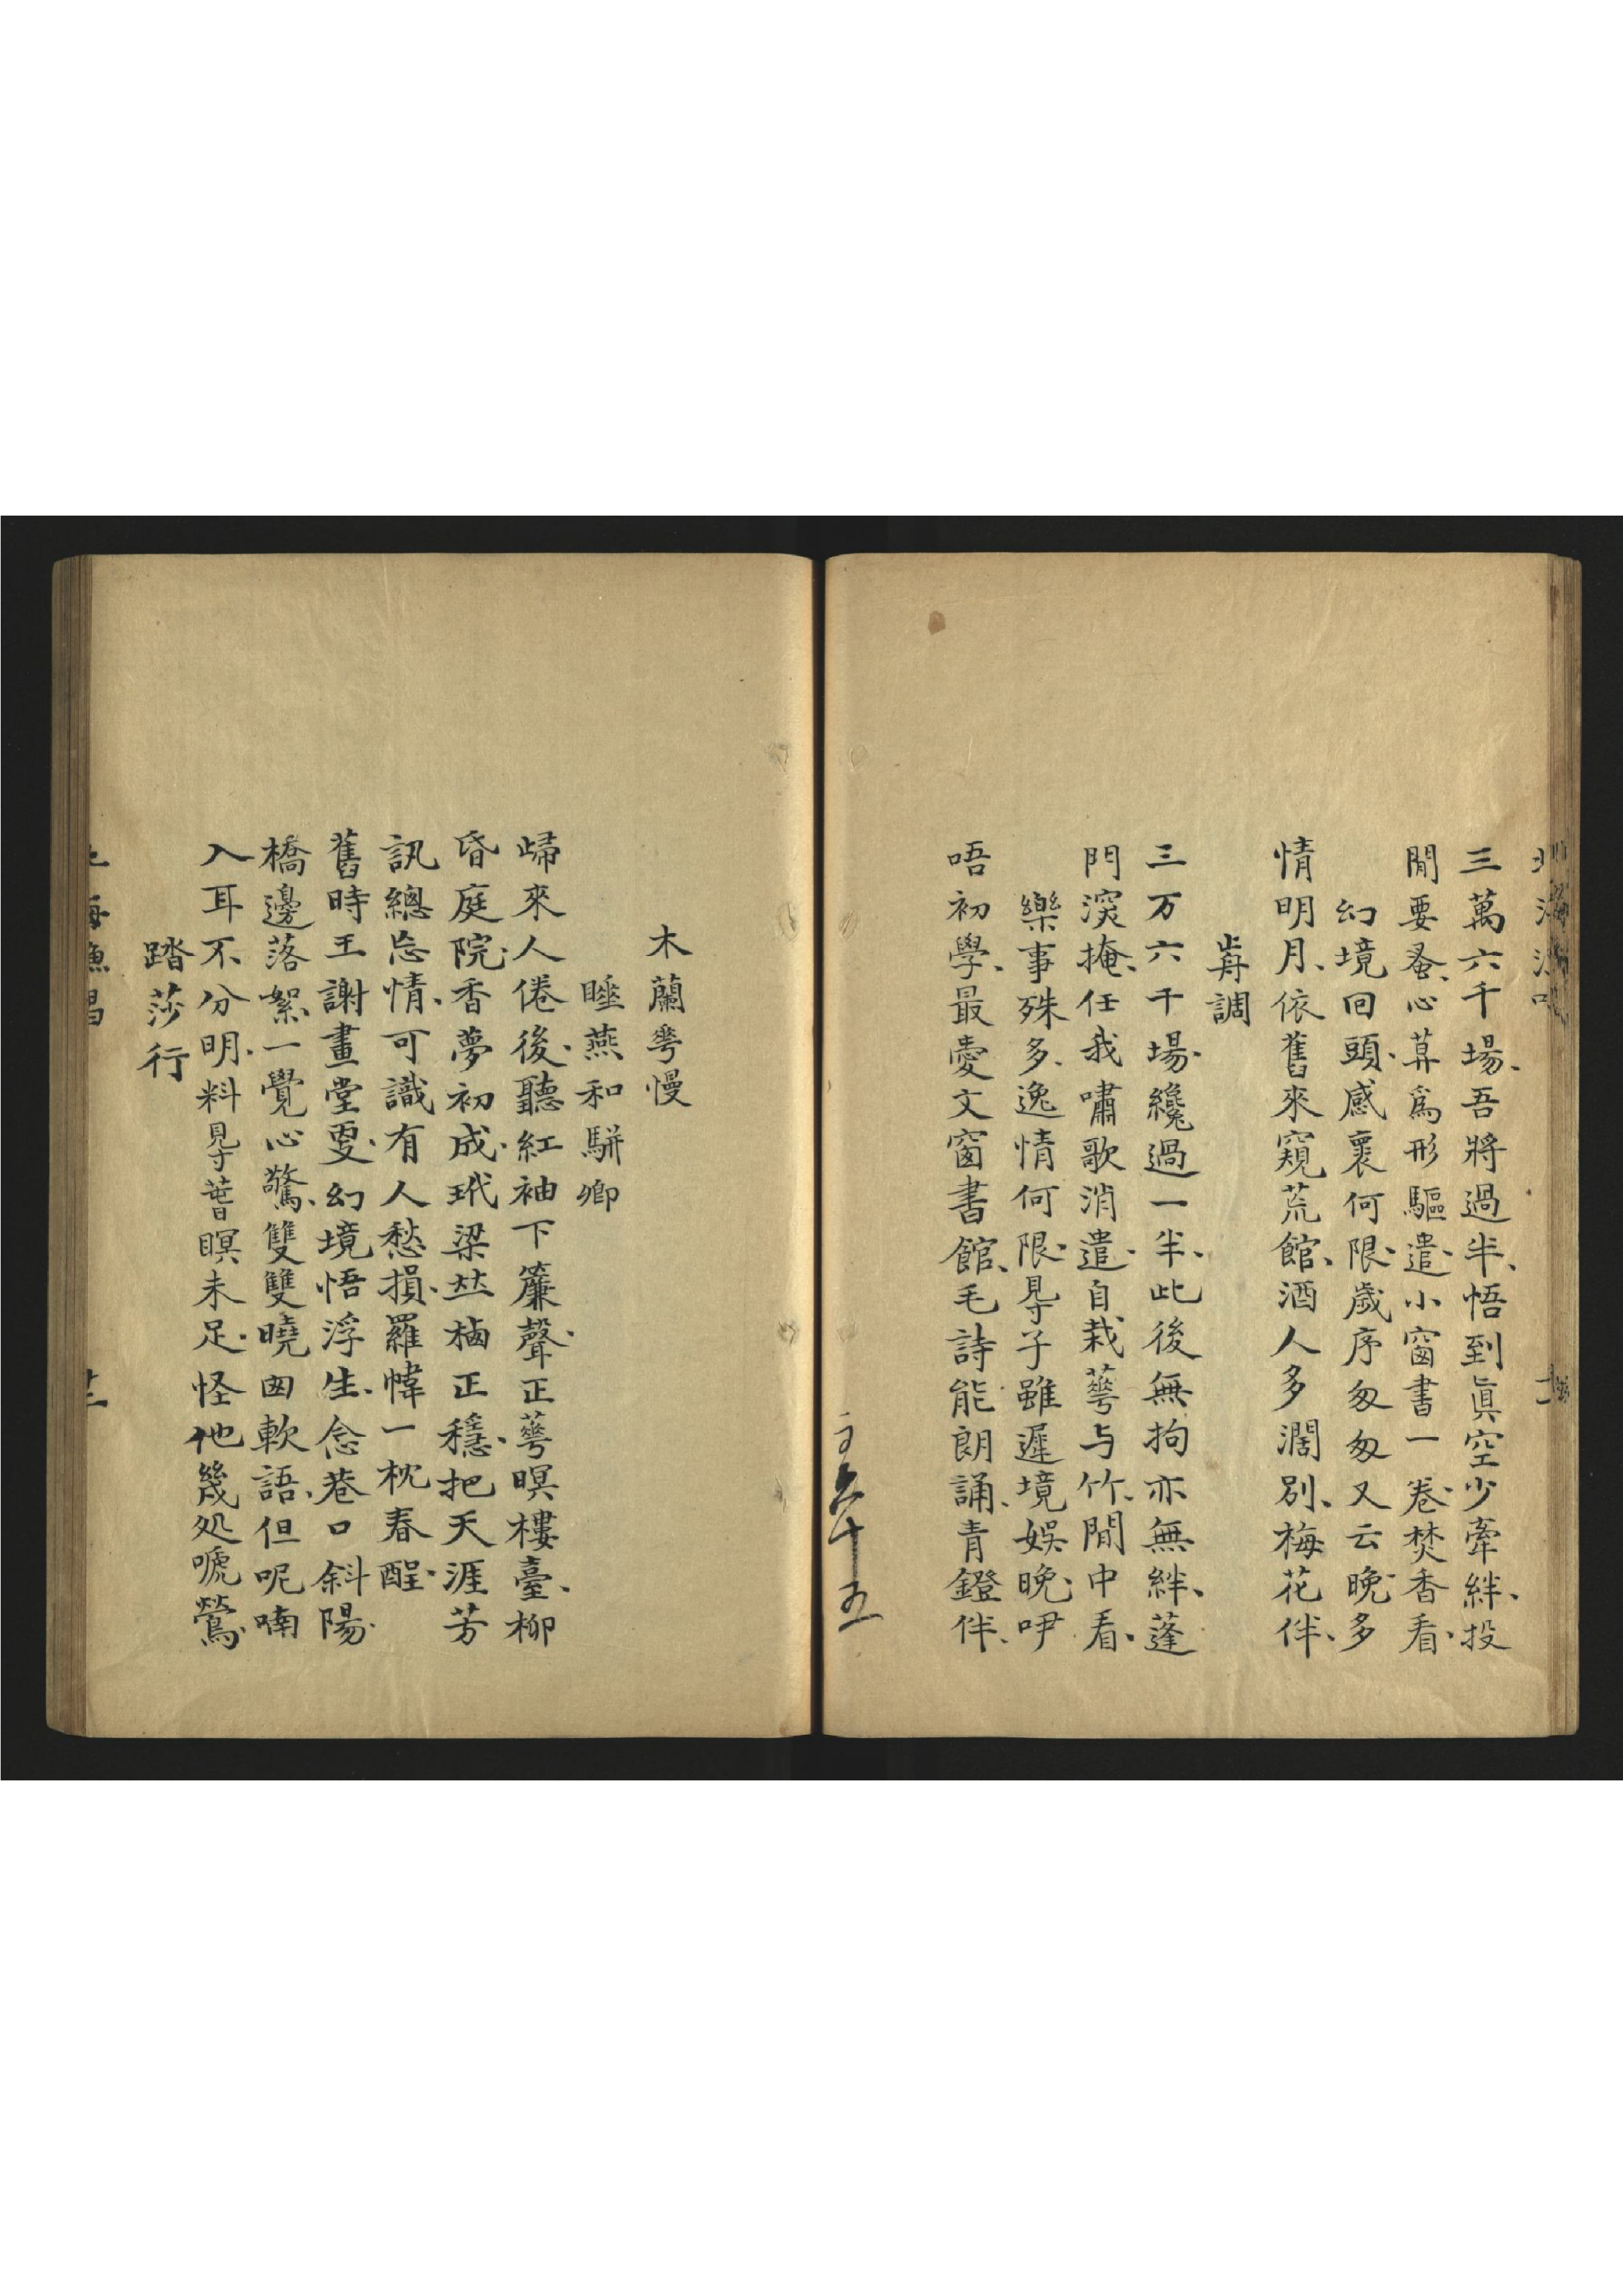 三萬六千場、吾將過半、悟到眞空少牽絆、投
閒要蚤、心算爲形驅遣、小窗書一卷、焚香看、
幻境回頭、感褱何限、歲序匆匆又云晚、多
情明月、依舊來窺荒館、酒人多濶別、梅花伴、
歬調
三万六千場、纔過一半、此後無拘亦無絆、蓬
門深掩、任我嘯歌消遣、自栽蕚与竹、閒中看、
樂事殊多、逸情何限、㝵子雖遲境娛晚、咿
唔初學、最愛文窗書館、毛詩能朗誦、青鐙伴、
木蘭蕚慢
睡燕和駢卿
歸來人倦後、聽紅袖下簾聲、正蕚暝樓臺、柳
昏庭院、香夢初成、玳梁竝棲正穩、把天涯芳
訊總忘情、可識有人愁損、羅幃一枕春酲、
舊時王謝畫堂更、幻境悟浮生、念巷口斜陽、
橋邊落絮、一覺心驚、雙雙曉囪軟語、但呢喃
入耳不分明、料㝵瞢暝未足、怪他幾処嗁鶯、
踏莎行